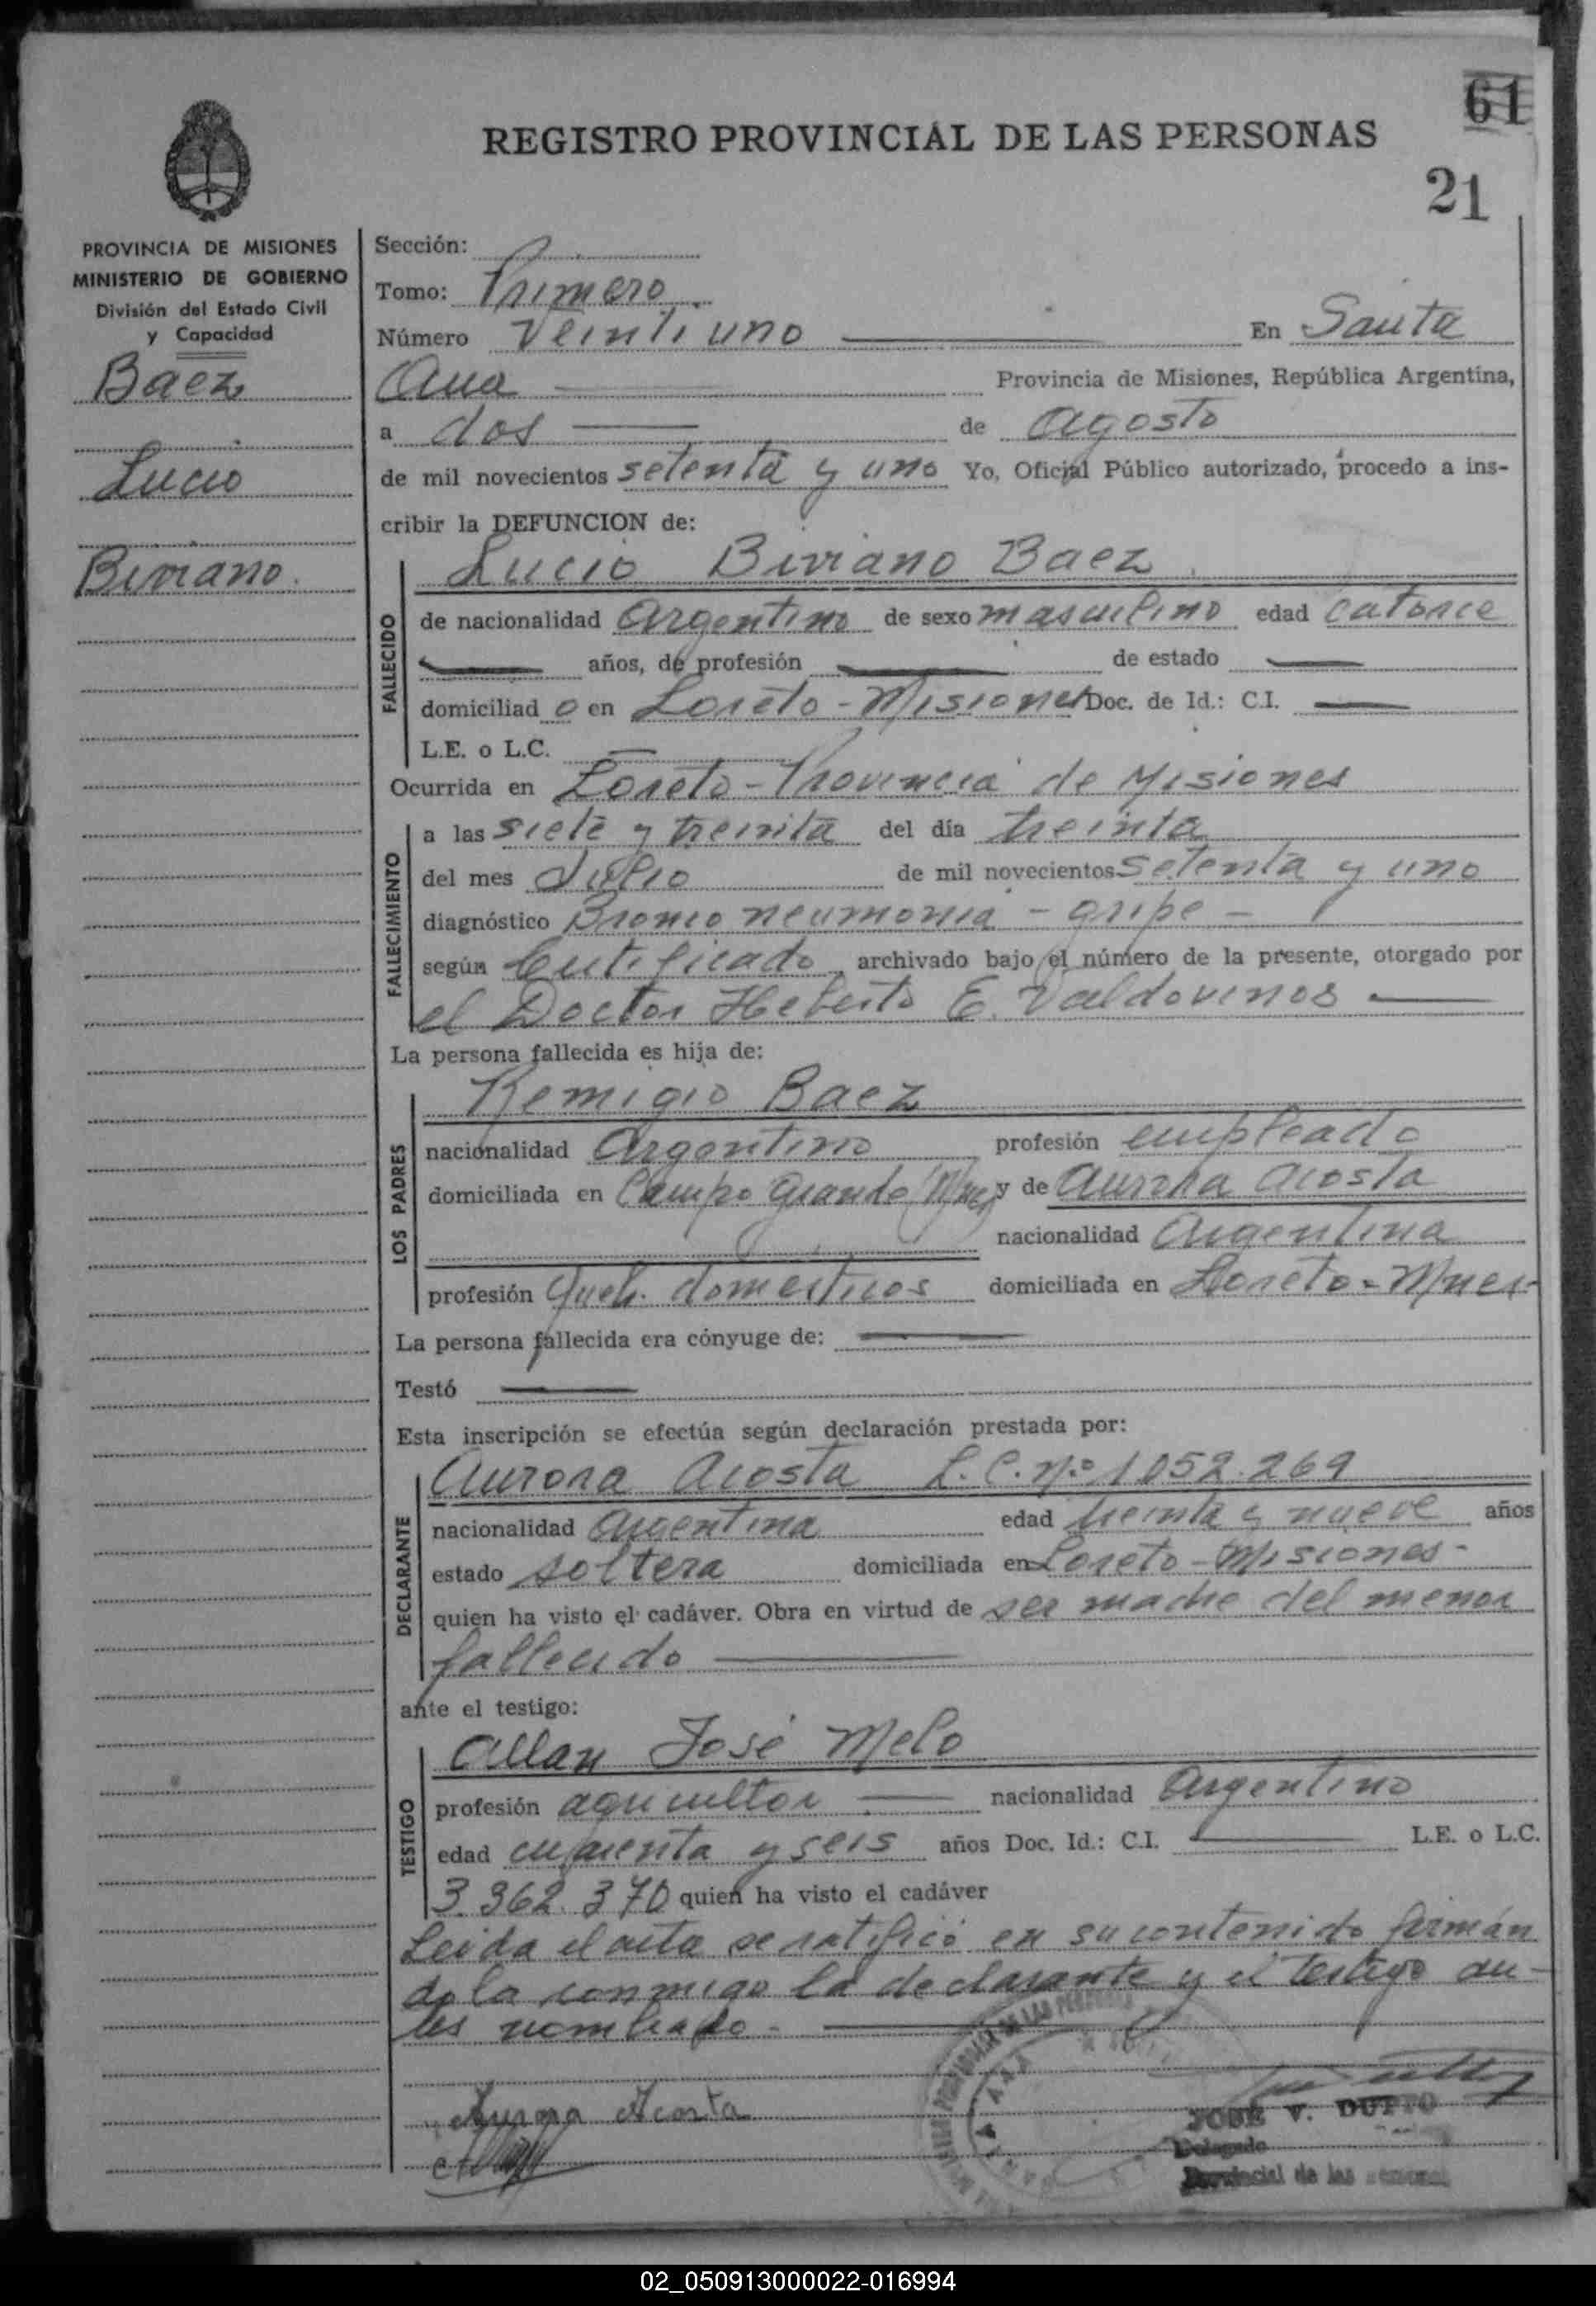 61
REGISTRO PROVINCIAL DE LAS PERSONAS
21
PROVINCIA DE MISIONES
MINISTERIO DE GOBIERNO
División del Estado Civil
y Capacidad
Baez
Lucio
Biviano.
Sección:
Tomo: Primero
Número Veintiuno En Santa
Ana Provincia de Misiones, República Argentina,
a dos de agosto
de mil novecientos setenta y uno Yo, Oficial Público autorizado, procedo a ins-
cribir la DEFUNCION de:
Lucio Biviano Baez
FALLECIDO
de nacionalidad Argentino de sexo masculino edad catorce
años, de profesión de estado
domiciliad o en Loreto - Misiones Doc. de Id.: C.I.
L.E. o L.C.
Ocurrida en Loreto - Provincia de Misiones
FALLECIMIENTO
a las siete y treinta del día treinta
del mes Julio de mil novecientos setenta y uno
diagnóstico Bronco neumonia - gripe -
según Certificado archivado bajo el número de la presente, otorgado por
el Doctor Heberto E. Valdovinos
La persona fallecida es hija de:
LOS PADRES
Remigio Baez
nacionalidad Argentino profesión empleado
domiciliada en Campo Grande Mnes y de Aurora Acosta
nacionalidad Argentina
profesión Queh. domesticos domiciliada en Loreto - Mnes -
La persona fallecida era cónyuge de:
Testó
Esta inscripción se efectúa según declaración prestada por:
DECLARANTE
Aurora Acosta L.C. Nº 1052.269
nacionalidad Argentina edad treinta y nueve años
estado soltera domiciliada en Loreto - Misiones -
quien ha visto el cadáver. Obra en virtud de ser madre del menor
fallecido
ante el testigo:
TESTIGO
Allan José Melo
profesión agricultor nacionalidad Argentino
edad cuarenta y seis años Doc. Id.: C.I. L.E. o L.C.
3.362.370 quien ha visto el cadáver
Leida el acta se ratificó en su contenido firmán
dola conmigo la declarante y el testigo an-
tes nombrado -
Aurora Acosta
JOSE V. DUTTO
Delegado
Provincial de las
02_050913000022-016994